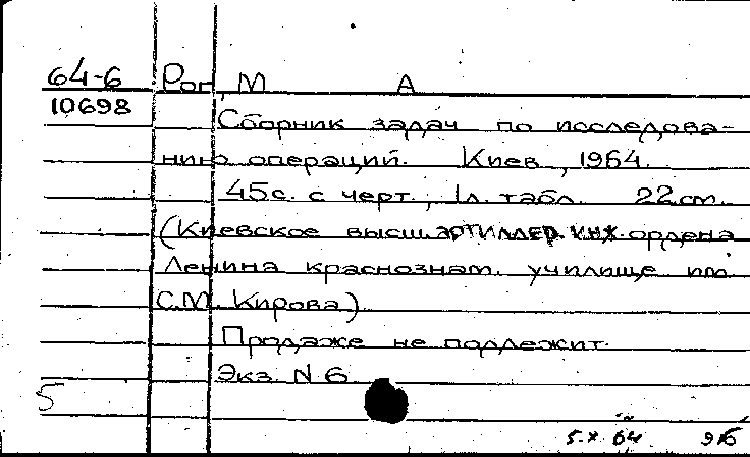 64-6 Рог, М А
10698
Сборник задач по исследова-
нию операций. Киев, 1964.
45с. с черт., 1л. табл. 22 см.
(Киевское высш. артиллер. инж. ордена
Ленина краснознам. училище им.
С.М. Кирова)
Продаже не подлежит.
Экз. N 6
5
5.X.64